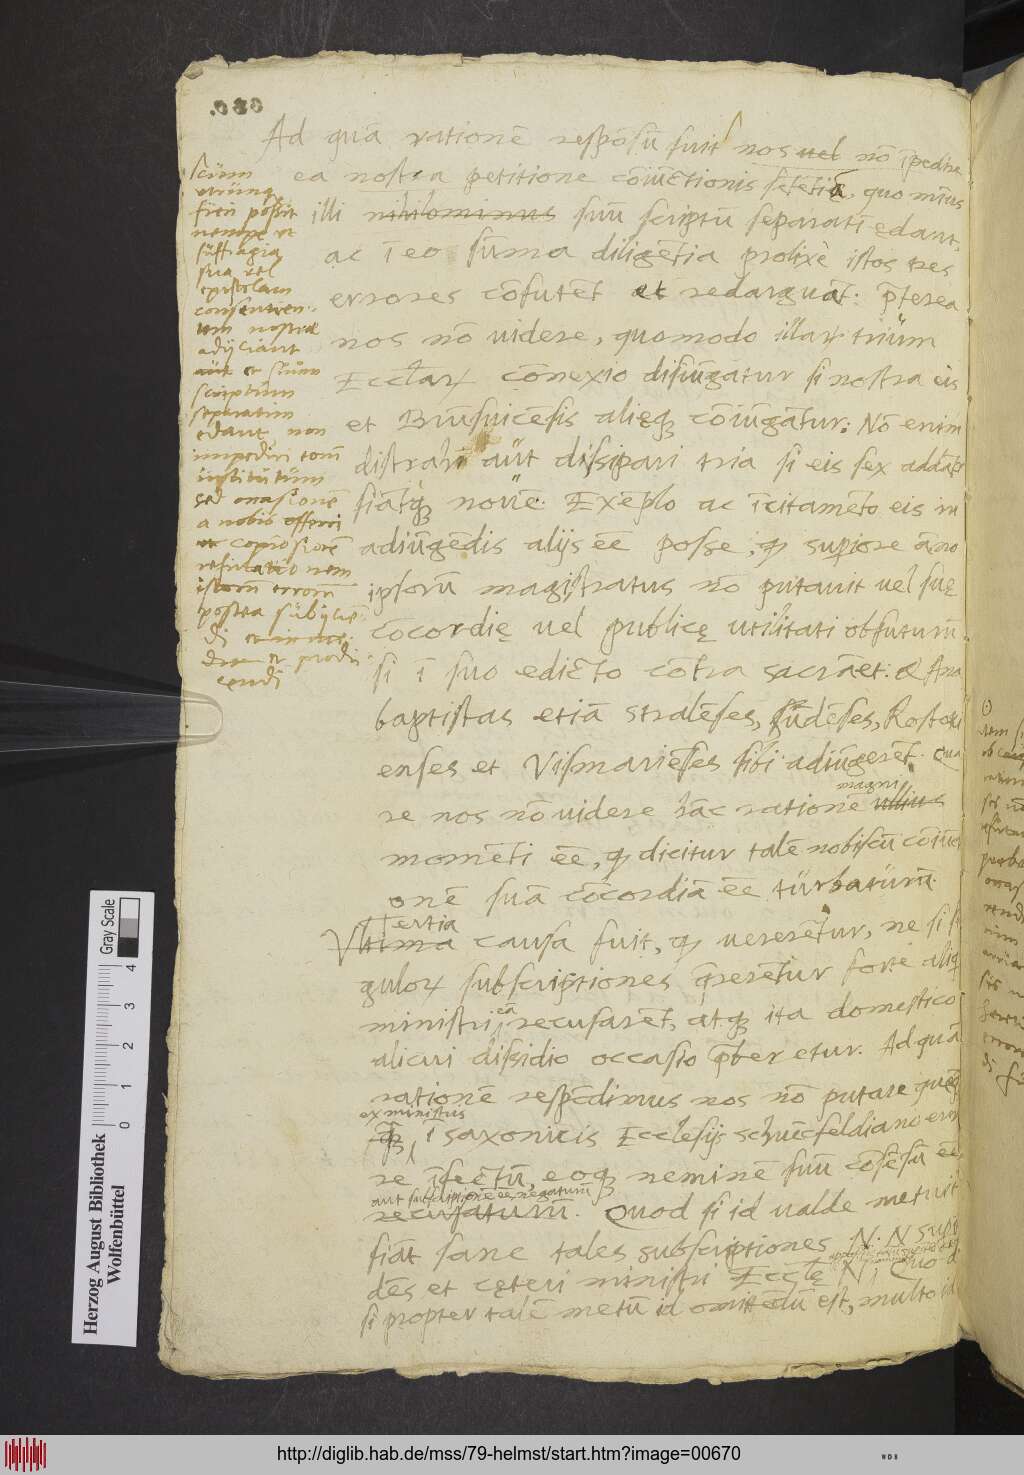 Ad quā rationē respōsū fuit nos uel nō īpedire
ea nostra petitione cōiūctionis sētētiā, quo minus
illi nihilominus suū scriptū separatī edant,
ac ī eo sūma diligētia prolixè istos tres
errores cōfutēt et redarguāt: p̄terea
nos nō uidere, quomodo illaꝝ trium
Eccl̄aꝝ cōnexio disiūgatur si nostra eis
et Brūsuicēsis alięꝙ cōiūgātur: Nō enim
distrahi aut dissipari tria si eis sex addātr
fiātꝙ nouē. Exēplo ac īcitamēto eis in
adiūgēdis alijs eē posse, ꝙ superiore āno
ipsorū magistratus nō putauit uel suę
cōcordię uel publicę utilitati obfuturū
si ī suo edicto cōtra sacrāet: & Ana
baptistas etiā Stralēses, sūdēses, Rostoki
enses et Vismariēses sibi adiūgerēt. Qua
re nos nō uidere hāc rationē ullius
magni
momēti eē, ꝙ dicitur talē nobiscū cōiūc
onē suā cōcordiā eē turbaturā.
Tertia
Vltima causa fuit, ꝙ uererētur, ne si si
guloꝝ subscriptiones q̄rerētur forte aliq
ministri eā recusarēt, atꝙ ita domestico
alicui dissidio occasio p̄beretur. Ad quā
rationē respōdimus nos nō putare quēꝙ
ex ministris
ī saxonicis Ecclesijs schuēcfeldiano erro
re īfectū, eoꝙ neminē suū cōsēsū eē
aut subscriptionē eē negaturū
recusaturū. Quod si id ualde metuit
fiāt sane tales subscriptiones N. N supīt
dēs et cęteri ministri Eccl̄ę N. Quod
si propter talē metū id omittēdū est, multo id
scriptum
utrumq
fieri possit
nempe ut
suffragia
sua vel
epistolam
consentien
tem nostræ
adijciant
aut et suum
scriptum
separatim
edant, non
impediri eorū
institutum
sed occasionē
a nobis offerri
et copiosiorē
refutationem
istorū errorū
postea subijciē
di et in me
dium et produ
cendi
Herzog August Bibliothek
Wolfenbüttel
Gray Scale
0 1 2 3 4
http://diglib.hab.de/mss/79-helmst/start.htm?image=00670